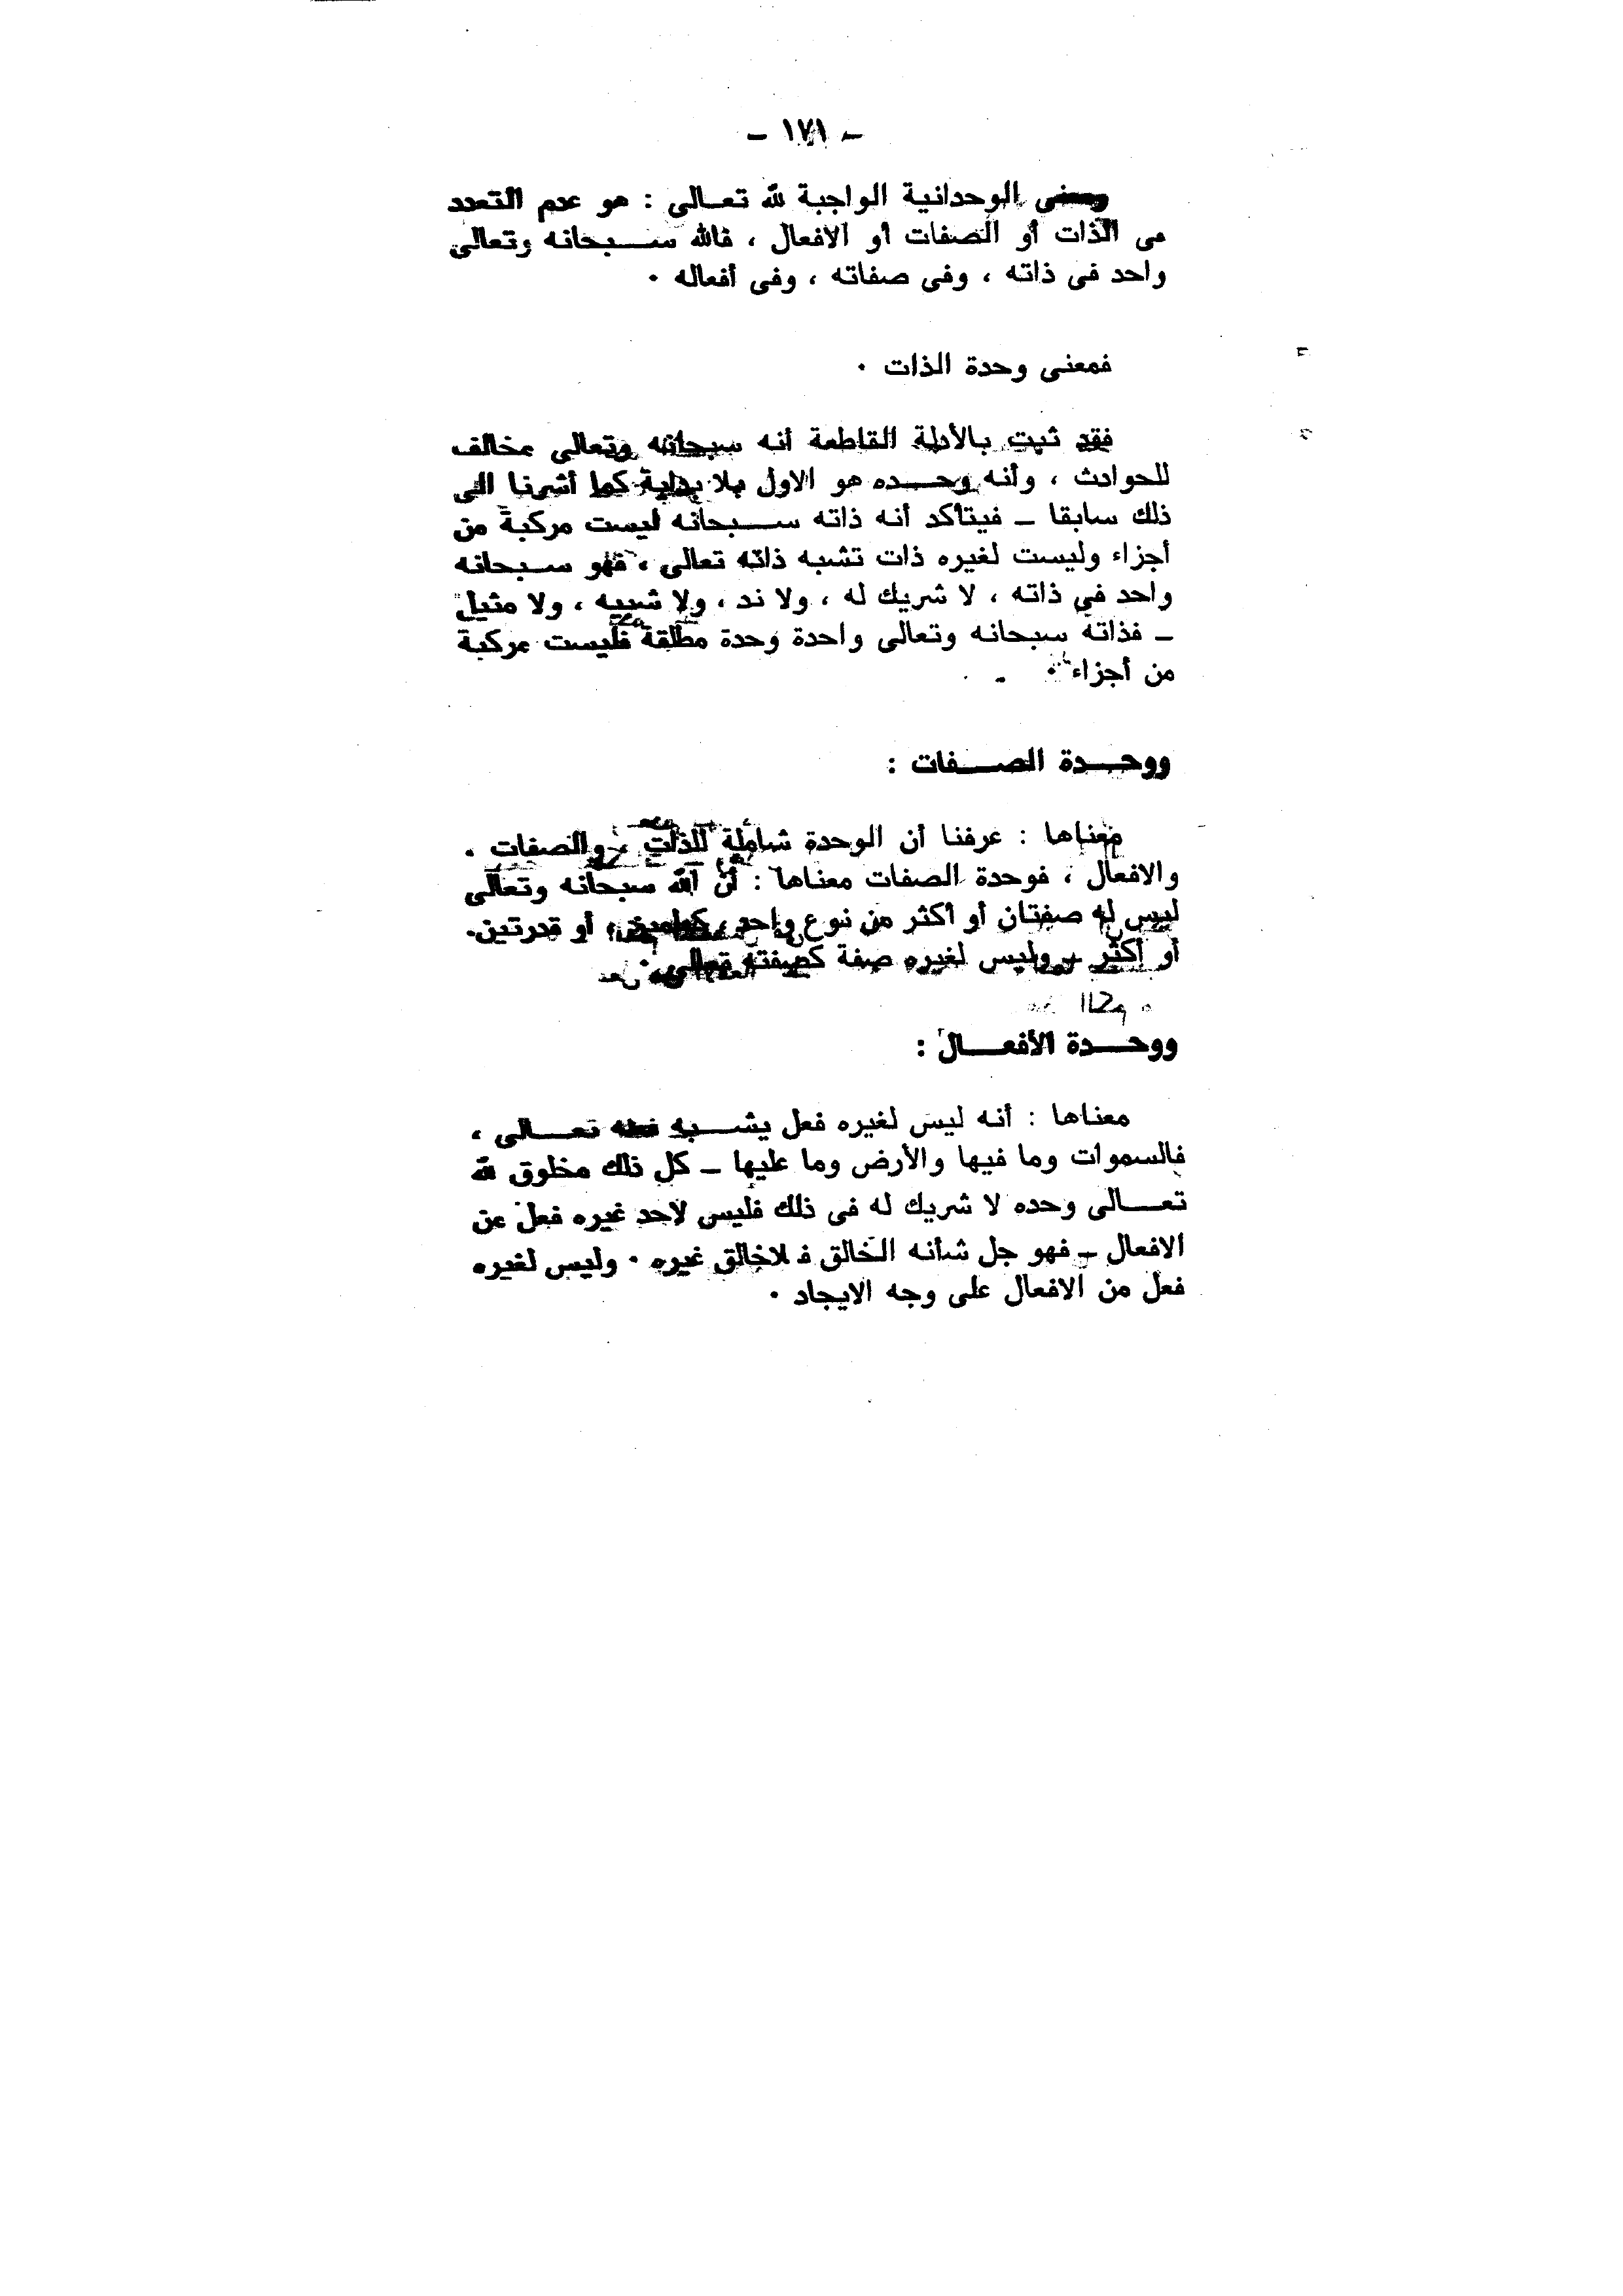 – ١٧١ –
ومعنى الوحدانية الواجبة لله تعـالى : هو عدم التعدد
فى الذات أو الصفات أو الافعال ، فالله سـبحانه وتعالى
واحد فى ذاته ، وفى صفاته ، وفى أفعاله ٠
فمعنى وحدة الذات ٠
فقد ثبت بالأدلة القاطعة أنه سبحانه وتعالى مخالف
للحوادث ، وأنه وحـده هو الاول بلا بداية كما أشرنا الى
ذلك سابقا – فيتأكد أنه ذاته سـبحانه ليست مركبة من
أجزاء وليست لغيره ذات تشبه ذاته تعالى ، فهو سـبحانه
واحد فى ذاته ، لا شريك له ، ولا ند ، ولا شبيه ، ولا مثيل
– فذاته سبحانه وتعالى واحدة وحدة مطلقة فليست مركبة
من أجزاء ٠
ووحـدة الصـفات :
معناها : عرفنا أن الوحدة شاملة للذات ، والصفات ٠
والافعال ، فوحدة الصفات معناها : أن الله سبحانه وتعالى
ليس له صفتان أو أكثر من نوع واحد ، أو قدرتين٠
أو أكثر – وليس لغيره صفة كصفته تعالى ٠
ووحـدة الأفعـال :
معناها : أنه ليس لغيره فعل يشـبه فعله تعـالى ،
فالسموات وما فيها والأرض وما عليها – كل ذلك مخلوق لله
تعـالى وحده لا شريك له فى ذلك فليس لاحد غيره فعل عن
الافعال – فهو جل شأنه الخالق فلاخالق غيره ٠ وليس لغيره
فعل من الافعال على وجه الايجاد ٠